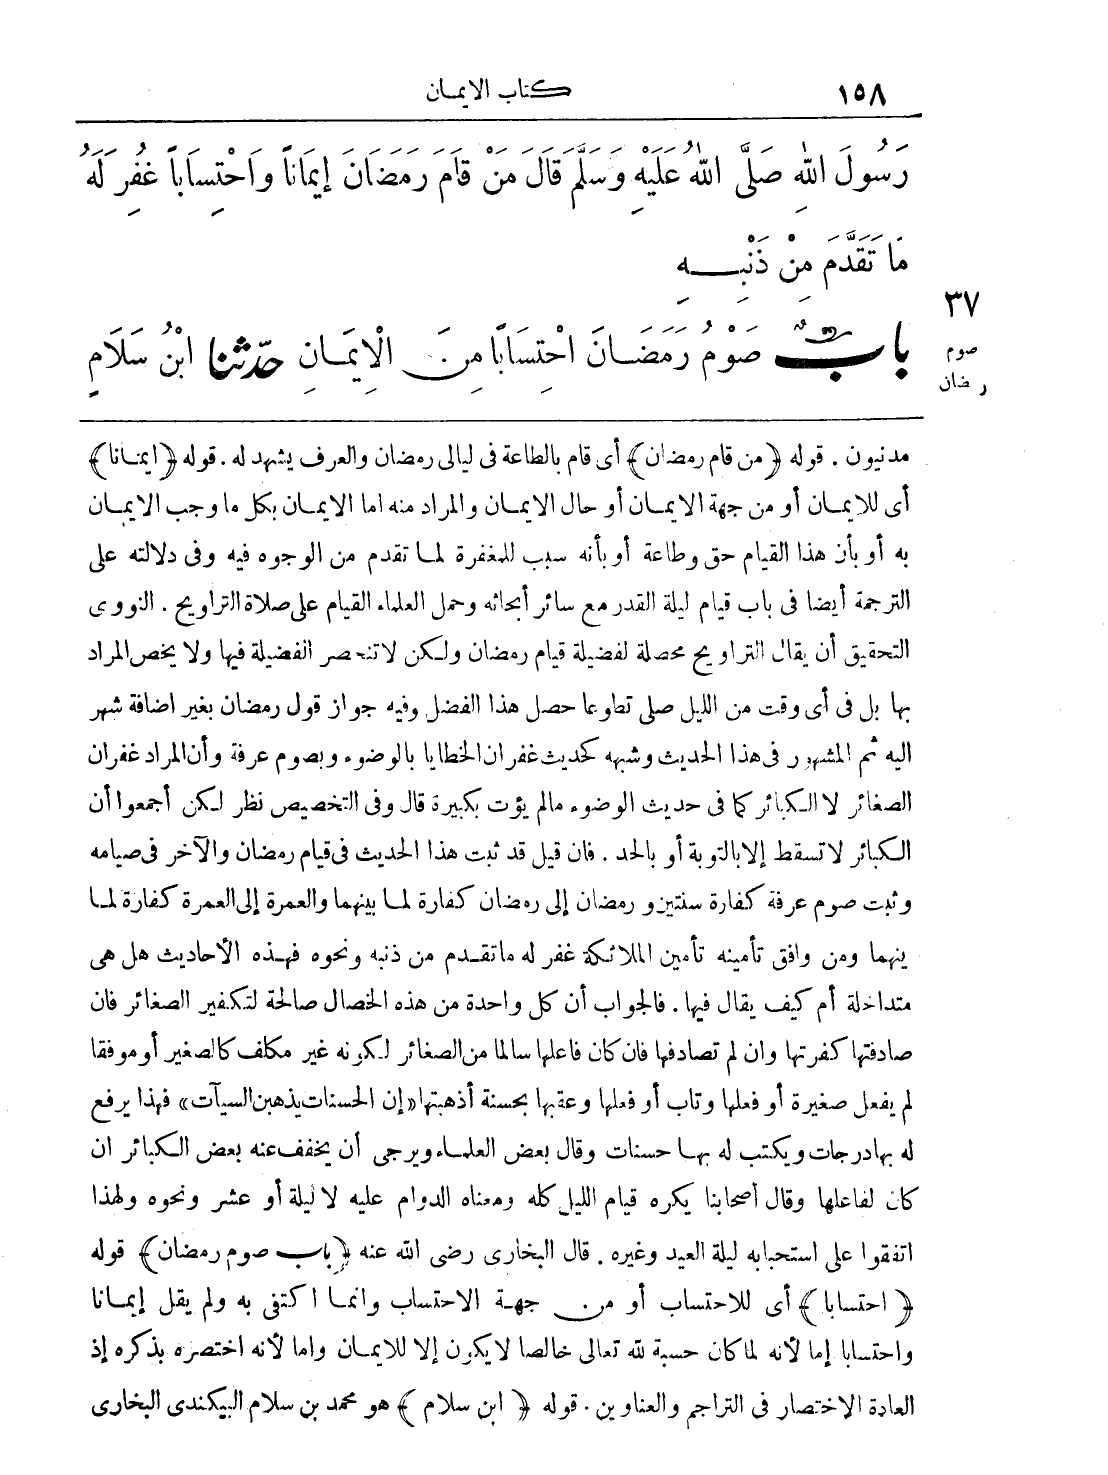 ١٥٨ كتاب الايمان
رَسُولَ اللهِ صَلَّى اللهُ عَلَيْهِ وَسَلَّمَ قَالَ مَنْ قَامَ رَمَضَانَ إِيمَاناً وَاحْتِسَاباً غُفِرَ لَهُ
مَا تَقَدَّمَ مِنْ ذَنْبِهِ
٣٧
صوم
رمضان
بابٌ صَوْمُ رَمَضَانَ احْتِسَابًا مِنَ الْإِيمَانِ حدثنا ابْنُ سَلَامٍ
مدنيون . قوله ﴿من قام رمضان﴾ أى قام بالطاعة فى ليالى رمضان والعرف يشهد له . قوله ﴿ايمانا﴾
أى للايمان أو من جهة الايمان أو حال الايمان والمراد منه اما الايمان بكل ما وجب الايمان
به أو بأن هذا القيام حق وطاعة أو بأنه سبب للمغفرة لما تقدم من الوجوه فيه وفى دلالته على
الترجمة أيضا فى باب قيام ليلة القدر مع سائر أبحاثه وحمل العلماء القيام على صلاة التراويح . النووى
التحقيق أن يقال التراويح محصلة لفضيلة قيام رمضان ولكن لا تنحصر الفضيلة فيها ولا يخص المراد
بها بل فى أى وقت من الليل صلى تطوعا حصل هذا الفضل وفيه جواز قول رمضان بغير اضافة شهر
اليه ثم المشهور فى هذا الحديث وشبهه كحديث غفران الخطايا بالوضوء وبصوم عرفة وأن المراد غفران
الصغائر لا الكبائر كما فى حديث الوضوء مالم يؤت بكبيرة قال وفى التخصيص نظر لكن أجمعوا أن
الكبائر لا تسقط إلا بالتوبة أو بالحد . فان قيل قد ثبت هذا الحديث فى قيام رمضان والآخر فى صيامه
وثبت صوم عرفة كفارة سنتين و رمضان إلى رمضان كفارة لما بينهما والعمرة إلى العمرة كفارة لما
بينهما ومن وافق تأمينه تأمين الملائكة غفر له ما تقدم من ذنبه ونحوه فهذه الأحاديث هل هى
متداخلة أم كيف يقال فيها . فالجواب أن كل واحدة من هذه الخصال صالحة لتكفير الصغائر فان
صادفتها كفرتها وان لم تصادفها فان كان فاعلها سالما من الصغائر لكونه غير مكلف كالصغير أو موفقا
لم يفعل صغيرة أو فعلها وتاب أو فعلها وعقبها بحسنة أذهبتها «إن الحسنات يذهبن السيآت» فهذا يرفع
له بها درجات ويكتب له بها حسنات وقال بعض العلماء ويرجى أن يخفف عنه بعض الكبائر ان
كان لفاعلها وقال أصحابنا يكره قيام الليل كله ومعناه الدوام عليه لا ليلة أو عشر ونحوه ولهذا
اتفقوا على استحبابه ليلة العيد وغيره . قال البخارى رضى الله عنه ﴿باب صوم رمضان﴾ قوله
﴿احتسابا﴾ أى للاحتساب أو من جهة الاحتساب وانما اكتفى به ولم يقل إيمانا
واحتسابا إما لأنه لما كان حسبة لله تعالى خالصا لا يكون إلا للايمان واما لأنه اختصره بذكره إذ
العادة الاختصار فى التراجم والعناوين . قوله ﴿ابن سلام﴾ هو محمد بن سلام البيكندى البخارى